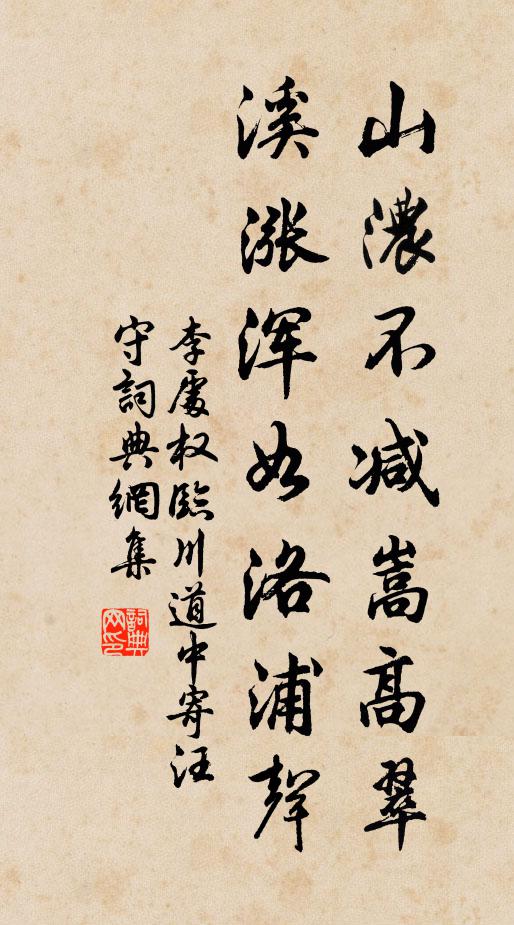 山濃不减嵩高翠
溪漲浑如洛浦聲
李處权臨川道中寄汪
守詞典網集
詞典网印